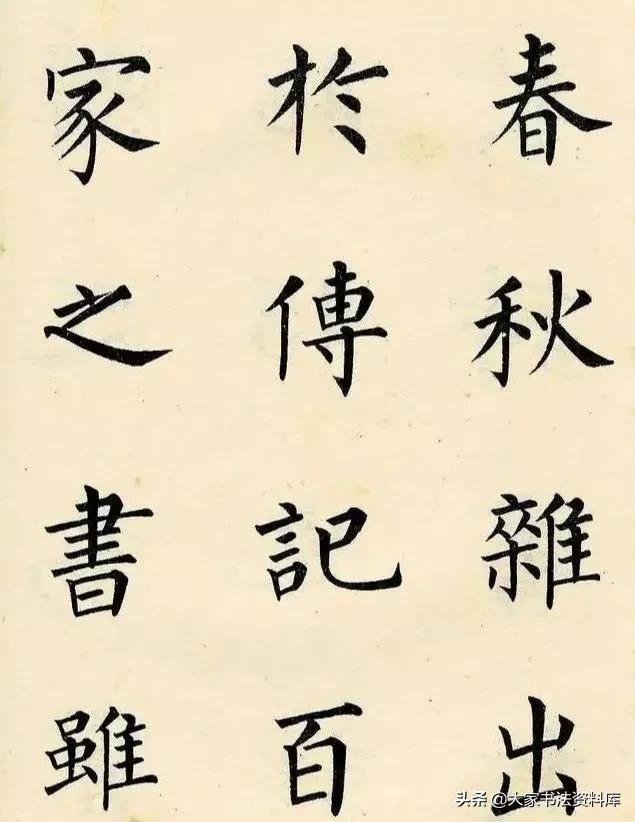 春秋雜出
於傳記百
家之書雖
头条 @大家书法资料库